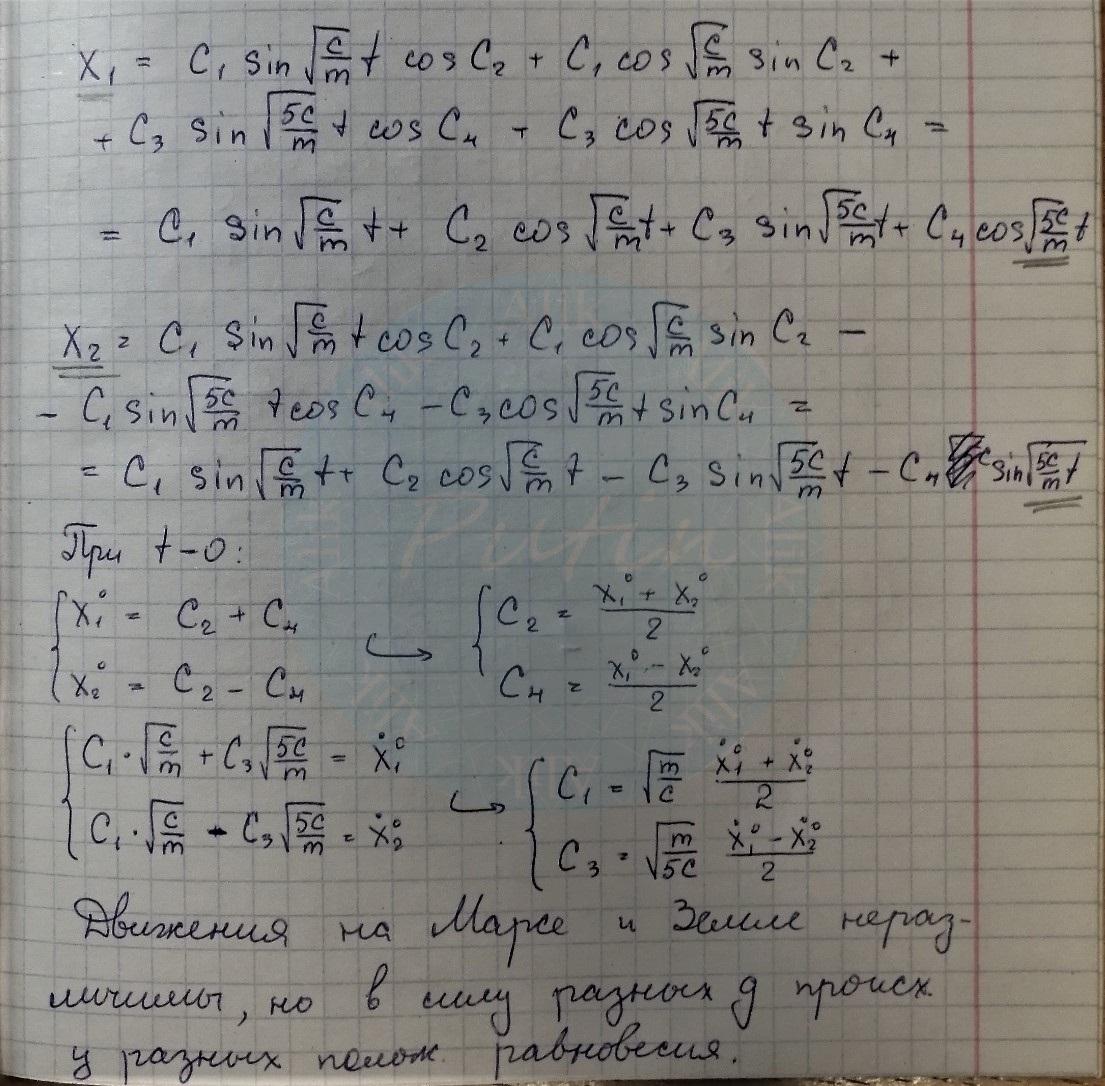 X₁ = C₁ sin√(c/m) t cos C₂ + C₁ cos√(c/m) sin C₂ +
+ C₃ sin√(5c/m) t cos C₄ + C₃ cos√(5c/m) t sin C₄ =
= C₁ sin√(c/m) t + C₂ cos√(c/m) t + C₃ sin√(5c/m) t + C₄ cos√(5c/m) t
X₂ = C₁ sin√(c/m) t cos C₂ + C₁ cos√(c/m) sin C₂ −
− C₁ sin√(5c/m) t cos C₄ − C₃ cos√(5c/m) t sin C₄ =
= C₁ sin√(c/m) t + C₂ cos√(c/m) t − C₃ sin√(5c/m) t − C₄ sin√(5c/m) t
При t − 0:
{ x₁° = C₂ + C₄ ↪ { C₂ = (x₁° + x₂°)/2
x₂° = C₂ − C₄ C₄ = (x₁° − x₂°)/2
{ C₁·√(c/m) + C₃√(5c/m) = ẋ₁° ↪ { C₁ = √(m/c) (ẋ₁° + ẋ₂°)/2
C₁·√(c/m) − C₃√(5c/m) = ẋ₂° C₃ = √(m/5c) (ẋ₁° − ẋ₂°)/2
Движения на Марсе и Земле нераз-
личимы, но в силу разных g происх.
у разных полож. равновесия.